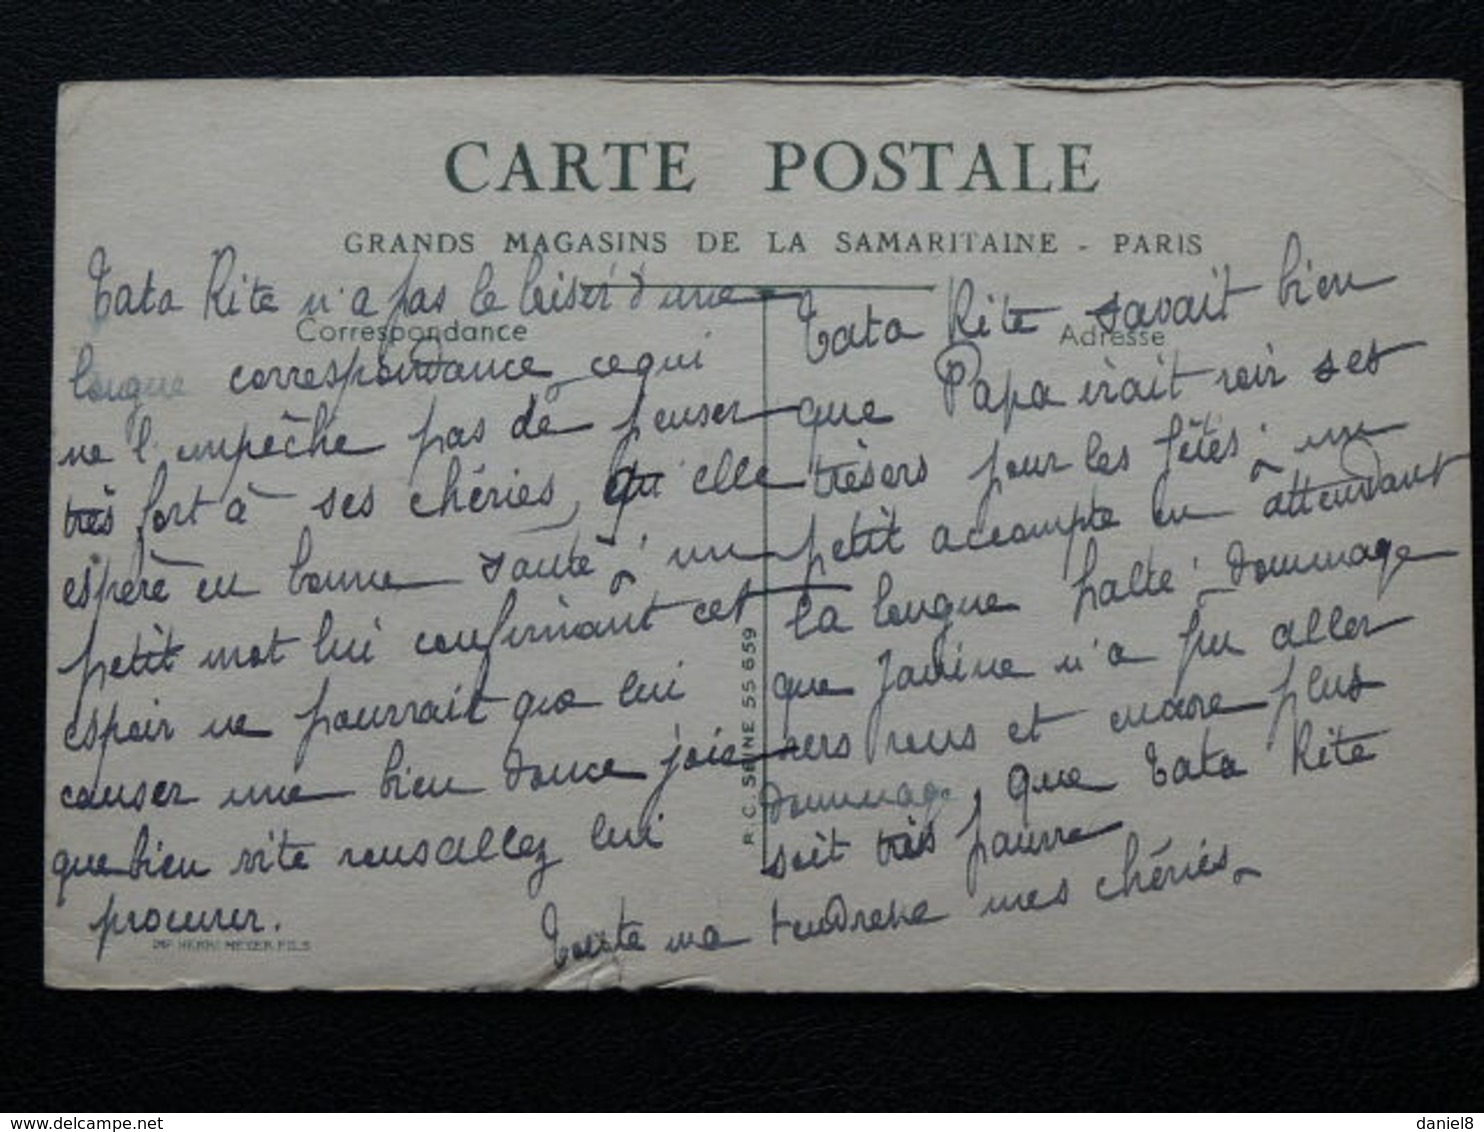 CARTE POSTALE
GRANDS MAGASINS DE LA SAMARITAINE - PARIS
Correspondance
Tata Rite n'a pas le loisir d'une
longue correspondance ce qui
ne l'empêche pas de penser
très fort à ses chéries, qu'elle
espère en bonne santé, un
petit mot lui confirmant cet
espoir ne pourrait que lui
causer une bien douce joie
que bien vite vous allez lui
procurer.
IMP. HENRI MEYER FILS
R.C. SEINE 55 659
Adresse
Tata Rite savait bien
que Papa irait voir ses
trésors pour les fêtes, un
petit accompte en attendant
la longue halte, dommage
que Janine n'a pu aller
vers vous et encore plus
dommage, que Tata Rite
soit très pauvre
Toute ma tendresse mes chéries.
daniel8